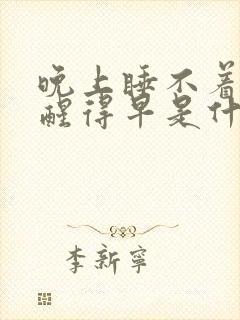 晚上睡不着
醒得早是什
李新宁